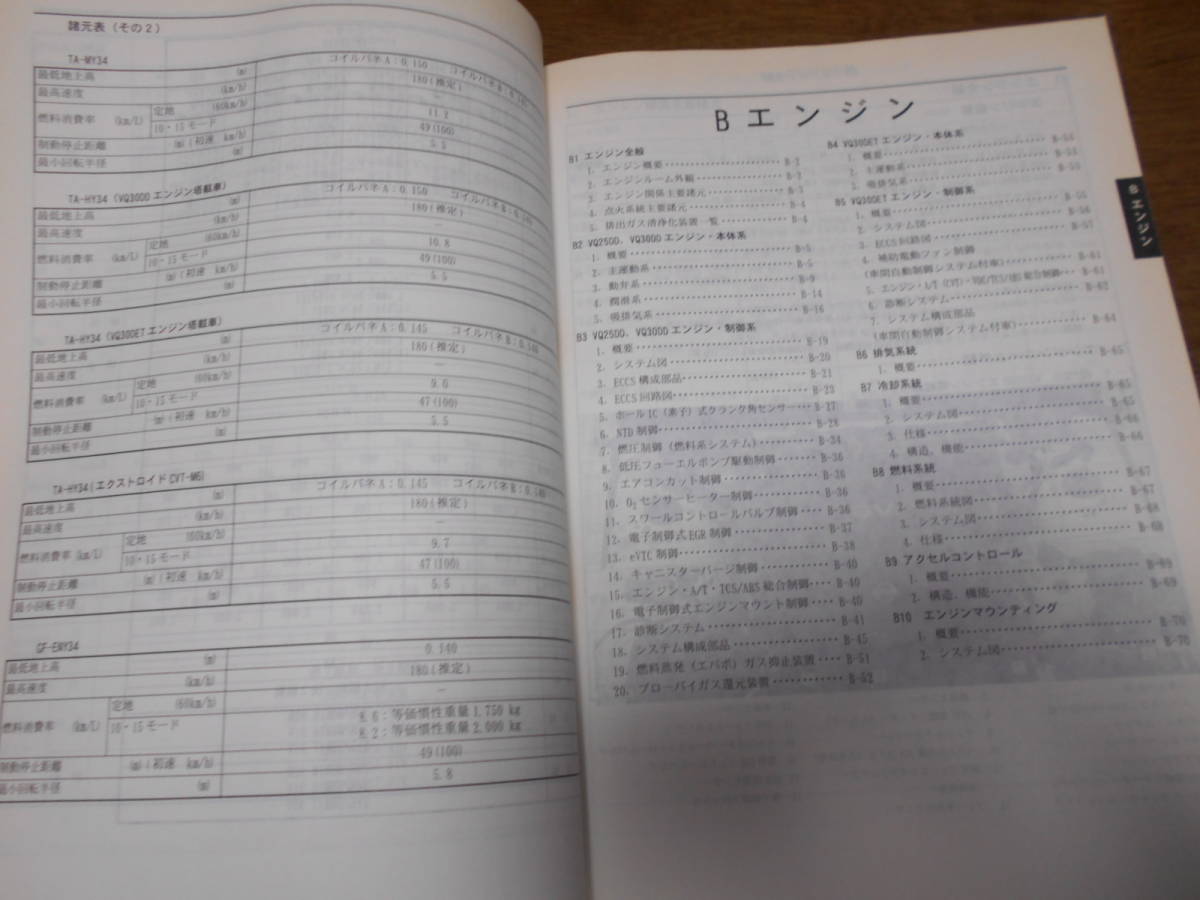 諸元表（その2）
TA-MY34
最低地上高 (m) コイルバネA：0.150 コイルバネB：0.145
最高速度 (km/h) 180(推定)
燃料消費率 (km/L) 定地 (60km/h) －
10・15モード 11.2
制動停止距離 (m)(初速 km/h) 49(100)
最小回転半径 (m) 5.5
TA-HY34（VQ30DDエンジン搭載車）
最低地上高 (m) コイルバネA：0.150 コイルバネB：0.145
最高速度 (km/h) 180(推定)
燃料消費率 (km/L) 定地 (60km/h) －
10・15モード 10.8
制動停止距離 (m)(初速 km/h) 49(100)
最小回転半径 (m) 5.5
TA-HY34（VQ30ETエンジン搭載車）
最低地上高 (m) コイルバネA：0.145 コイルバネB：0.140
最高速度 (km/h) 180(推定)
燃料消費率 (km/L) 定地 (60km/h) －
10・15モード 9.0
制動停止距離 (m)(初速 km/h) 47(100)
最小回転半径 (m) 5.5
TA-HY34(エクストロイドCVT-M6)
最低地上高 (m) コイルバネA：0.145 コイルバネB：0.140
最高速度 (km/h) 180(推定)
燃料消費率 (km/L) 定地 (60km/h) －
10・15モード 9.7
制動停止距離 (m)(初速 km/h) 47(100)
最小回転半径 (m) 5.5
GF-ENY34
最低地上高 (m) 0.140
最高速度 (km/h) 180(推定)
燃料消費率 (km/L) 定地 (60km/h) －
10・15モード 8.6：等価慣性重量1,750 kg
8.2：等価慣性重量2,000 kg
制動停止距離 (m)(初速 km/h) 49(100)
最小回転半径 (m) 5.8
Bエンジン
B1 エンジン全般
1. エンジン概要 B-2
2. エンジンルーム外観 B-2
3. エンジン関係主要諸元 B-3
4. 点火系統主要諸元 B-4
5. 排出ガス清浄化装置一覧 B-4
B2 VQ25DD、VQ30DDエンジン・本体系
1. 概要 B-5
2. 主運動系 B-5
3. 動弁系 B-9
4. 潤滑系 B-14
5. 吸排気系 B-16
B3 VQ25DD、VQ30DDエンジン・制御系
1. 概要 B-19
2. システム図 B-20
3. ECCS構成部品 B-21
4. ECCS回路図 B-23
5. ホールIC（素子）式クランク角センサー B-27
6. NTD制御 B-28
7. 燃圧制御（燃料系システム） B-34
8. 低圧フューエルポンプ駆動制御 B-36
9. エアコンカット制御 B-36
10. O2センサーヒーター制御 B-36
11. スワールコントロールバルブ制御 B-36
12. 電子制御式EGR制御 B-37
13. eVTC制御 B-38
14. キャニスターパージ制御 B-40
15. エンジン・A/T・TCS/ABS総合制御 B-40
16. 電子制御式エンジンマウント制御 B-40
17. 診断システム B-41
18. システム構成部品 B-45
19. 燃料蒸発（エバポ）ガス抑止装置 B-51
20. ブローバイガス還元装置 B-52
B4 VQ30ETエンジン・本体系
1. 概要 B-54
2. 主運動系 B-54
3. 吸排気系 B-55
B5 VQ30ETエンジン・制御系
1. 概要 B-55
2. システム図 B-56
3. ECCS回路図 B-57
4. 補助電動ファン制御
（車間自動制御システム付車） B-61
5. エンジン・A/T（CVT）・VDC/TCS/ABS総合制御 B-61
6. 診断システム B-62
7. システム構成部品
（車間自動制御システム付車） B-64
B6 排気系統
1. 概要 B-65
B7 冷却系統
1. 概要 B-65
2. システム図 B-65
3. 仕様 B-66
4. 構造、機能 B-66
B8 燃料系統
1. 概要 B-67
2. 燃料系統図 B-67
3. システム図 B-68
4. 仕様 B-68
B9 アクセルコントロール
1. 概要 B-69
2. 構造、機能 B-69
B10 エンジンマウンティング
1. 概要 B-70
2. システム図 B-70
Bエンジン